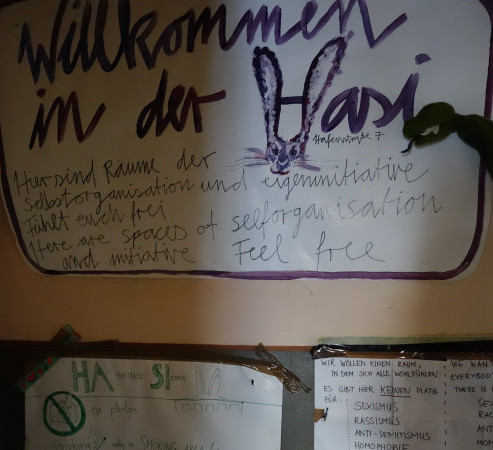 Willkommen
in der Hasi
Hafenstraße 7
Hier sind Räume der
selbstorganisation und eigeninitiative
Fühlt euch frei
Here are spaces of selforganisation
and initiative Feel free
HA SI
no photos
smoking only in SMOKING
WIR WOLLEN EINEN RAUM,
IN DEM SICH ALLE WOHLFÜHLEN!
ES GIBT HIER KEINEN PLATZ
FÜR:
SEXISMUS
RASSISMUS
ANTI-SEMITISMUS
HOMOPHOBIE
WE WAN
EVERYBOD
THERE IS
SEX
RAC
ANT
HOM